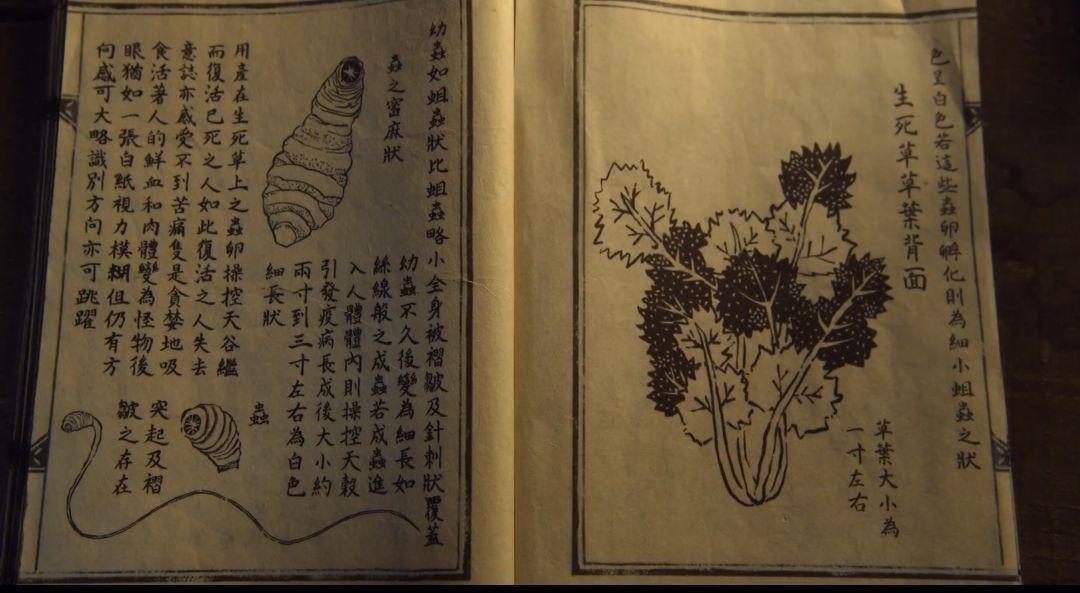 色呈白色若這些蟲卵孵化則為細小蛆蟲之狀
生死草草葉背面
草葉大小為
一寸左右
幼蟲如蛆蟲狀比蛆蟲略小全身被褶皺及針刺狀覆蓋
蟲之富麻狀
幼蟲不久後變為細長如
絲線般之成蟲若成蟲進
入人體體內則操控天穀
引發疫病長成後大小約
兩寸到三寸左右為白色
細長狀
用產在生死草上之蟲卵操控天谷繼
而復活已死之人如此復活之人失去
意誌亦感受不到苦痛隻是貪婪地吸
食活著人的鮮血和肉體變為怪物後
眼猶如一張白紙視力模糊但仍有方
向感可大略識別方向亦可跳躍
蟲
突起及褶
皺之存在